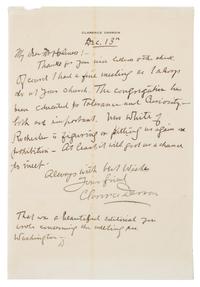 CLARENCE DARROW
Dec. 13th
My Dear Dr Holmes:—
Thanks for your nice letter with check
Of course I had a fine meeting as I always
do at your church. The congregation has
been educated to tolerance and curiosity—
both are important. Miss White of
Rochester is figuring on pitting us again on
prohibition — At least it will give us a chance
to meet.
Always with best wishes
Your friend
Clarence Darrow
That was a beautiful editorial you
wrote concerning the meeting in
Washington—